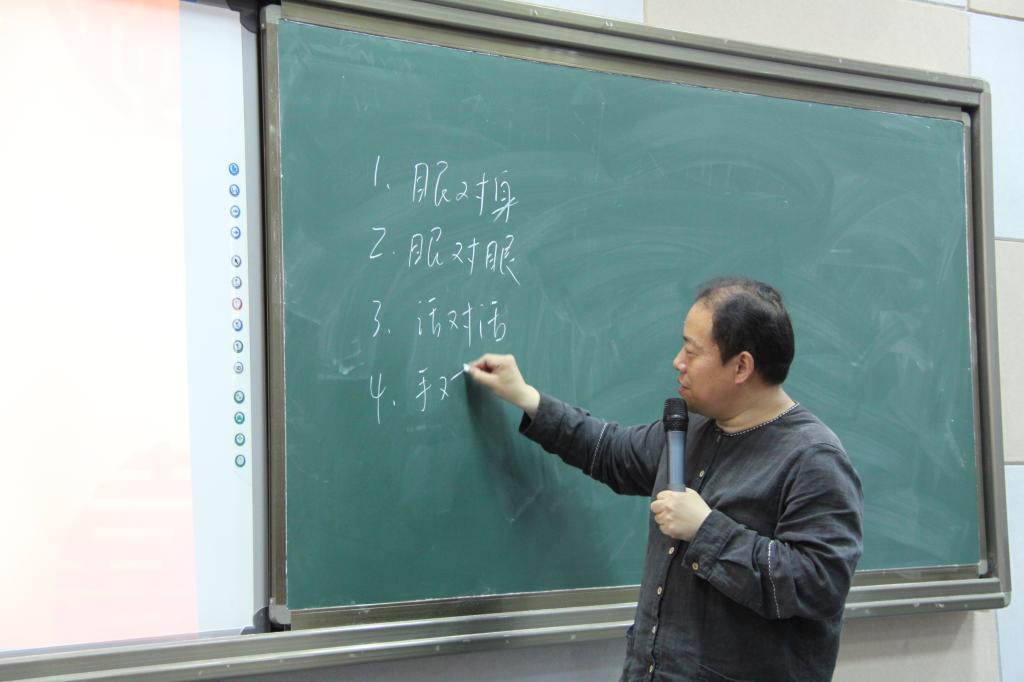 1. 眼对
2. 眼对眼
3. 话对话
4. 手